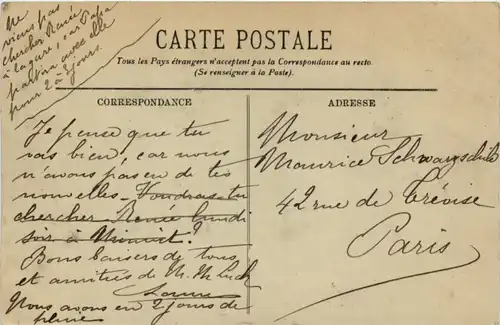 Ne
viens pas
chercher Renée
à la gare, car Papa
partira avec elle
pour 2 à 3 jours.
CARTE POSTALE
Tous les Pays étrangers n'acceptent pas la Correspondance au recto
(Se renseigner à la Poste).
CORRESPONDANCE
Je pense que tu
vas bien, car nous
n'avons pas eu de tes
nouvelles - Voudras-tu
chercher Renée lundi
soir à Minuit?
Bons baisers de tous
et amitiés de M. Mme
Nous avons eu 2 jours de
pluie
ADRESSE
Monsieur
Maurice Schwarzschild
42 rue de Trévise
Paris